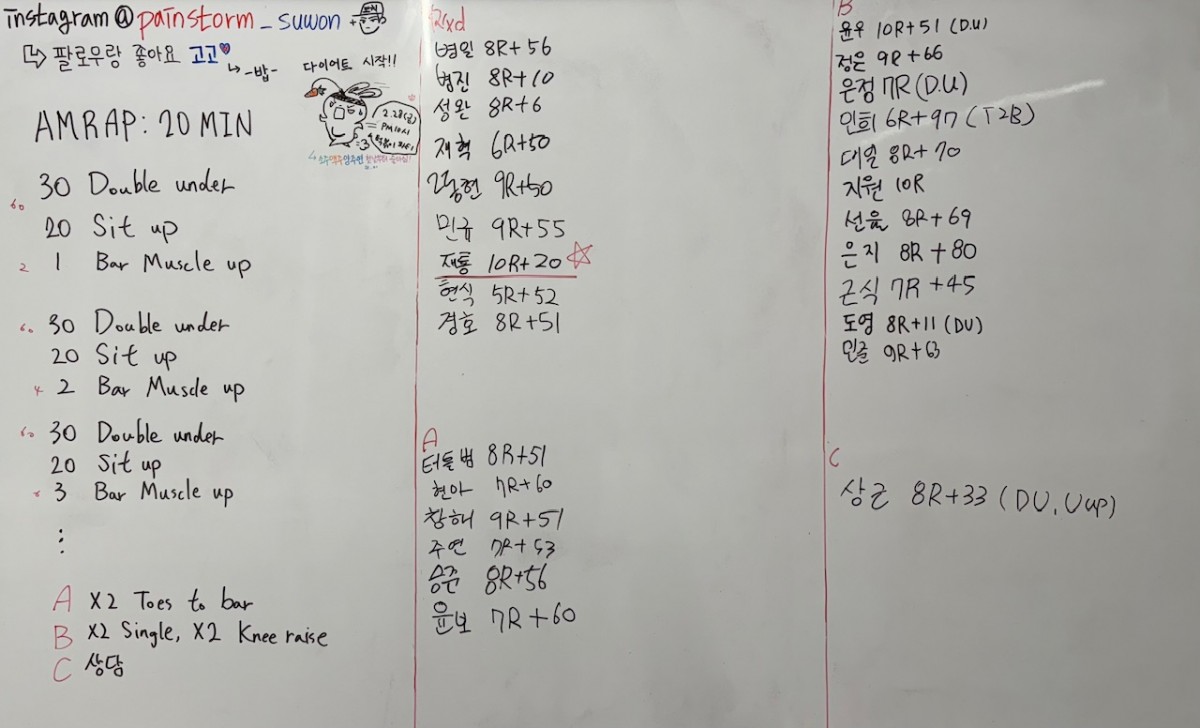 instagram@painstorm_suwon +
↳ 팔로우랑 좋아요 고고♥
↳ -밥-
다이어트 시작!!
2.28(금)
PM 10시
AMRAP: 20 MIN
60
30 Double under
20 Sit up
2 1 Bar Muscle up
60 30 Double under
20 Sit up
4 2 Bar Muscle up
60 30 Double under
20 Sit up
3 Bar Muscle up
⋮
A X2 Toes to bar
B X2 Single, X2 Knee raise
C 상담
Rxd
병일 8R+56
병진 8R+10
성완 8R+6
재혁 6R+50
9R+50
민규 9R+55
재룡 10R+20 ☆
현식 5R+52
경호 8R+51
A
터틀범 8R+51
현아 7R+60
창해 9R+51
주연 7R+53
승준 8R+56
윤보 7R+60
B
윤우 10R+51 (D.U)
정은 9R+66
은정 7R (D.U)
인희 6R+97 (T2B)
대일 8R+70
지원 10R
선율 8R+69
은지 8R+80
근식 7R+45
도영 8R+11 (DU)
9R+63
C
상근 8R+33 (DU, Uup)